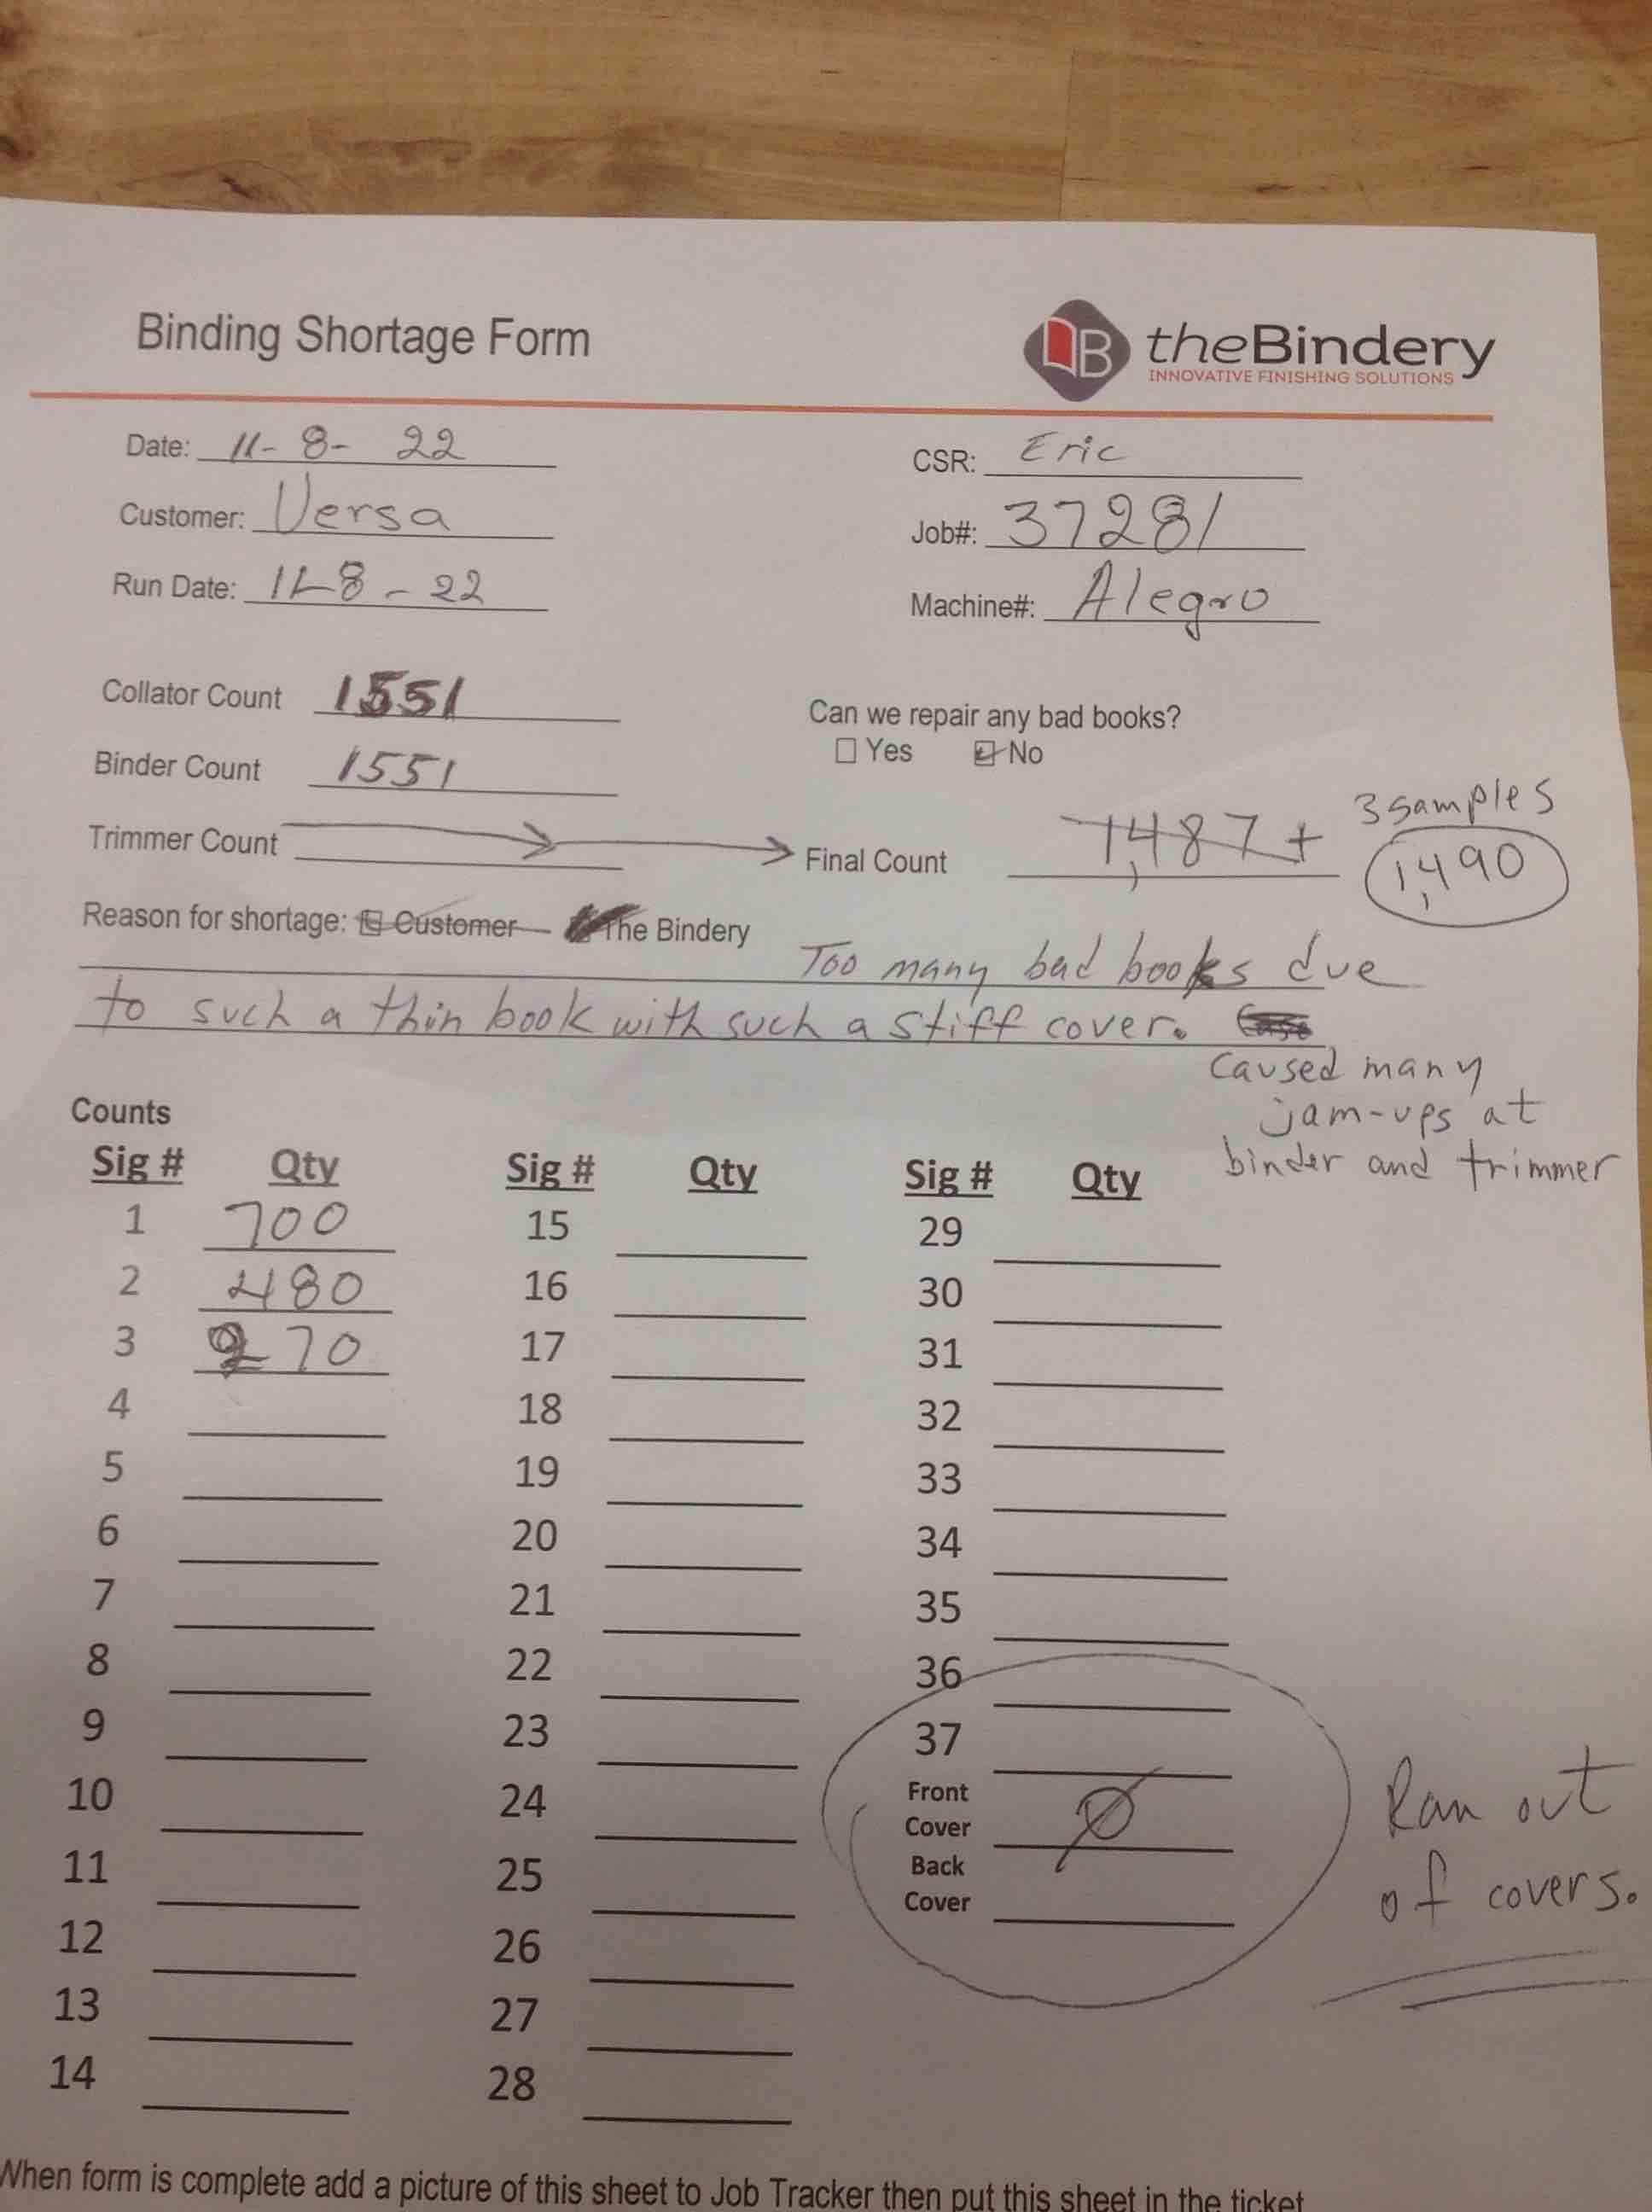 Binding Shortage Form
B theBindery
INNOVATIVE FINISHING SOLUTIONS
Date: 11-8-22 CSR: Eric
Customer: Versa Job#: 37281
Run Date: 11-8-22 Machine#: Alegro
Collator Count 1551 Can we repair any bad books?
Yes No
Binder Count 1551
3 samples
Trimmer Count Final Count 1,487 + 1,490
Reason for shortage: Customer The Bindery
Too many bad books due
to such a thin book with such a stiff cover.
Caused many
jam-ups at
binder and trimmer
Counts
Sig # Qty Sig # Qty Sig # Qty
1 700 15 29
2 480 16 30
3 70 17 31
4 18 32
5 19 33
6 20 34
7 21 35
8 22 36
9 23 37
10 24 Front Cover Ø
11 25 Back Cover
Ran out
of covers.
12 26
13 27
14 28
When form is complete add a picture of this sheet to Job Tracker then put this sheet in the ticket